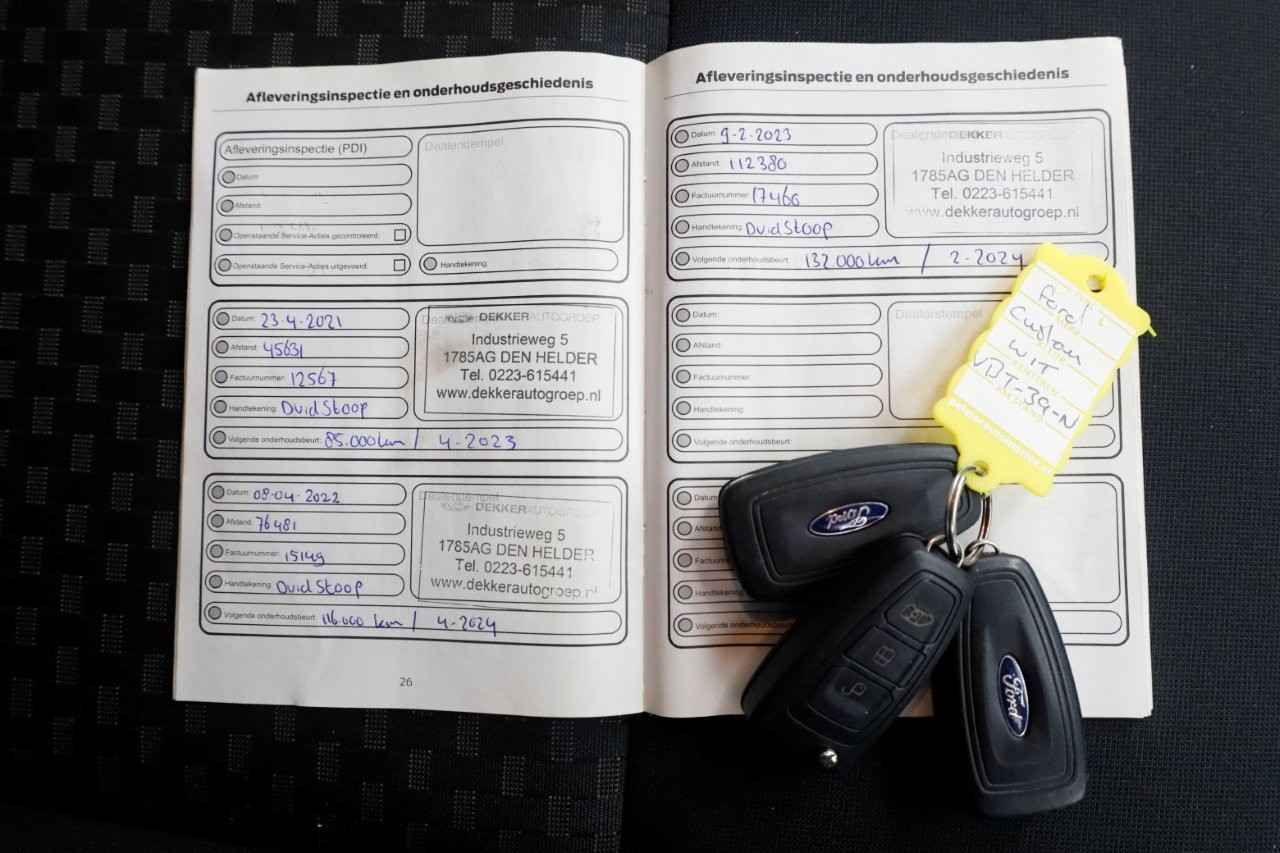 Afleveringsinspectie en onderhoudsgeschiedenis
Afleveringsinspectie (PDI)
Dealerstempel
Datum:
Afstand:
Openstaande Service-Acties gecontroleerd:
Openstaande Service-Acties uitgevoerd:
Handtekening:
Datum: 23-4-2021
Afstand: 45631
Factuurnummer: 12567
Handtekening: Dvid Stoop
Volgende onderhoudsbeurt: 85.000 km / 4-2023
DEKKER AUTOGROEP
Industrieweg 5
1785AG DEN HELDER
Tel. 0223-615441
www.dekkerautogroep.nl
Datum: 08-04-2022
Afstand: 76481
Factuurnummer: 15149
Handtekening: Dvid Stoop
Volgende onderhoudsbeurt: 116000 km / 4-2024
Dealerstempel
DEKKER AUTOGROEP
Industrieweg 5
1785AG DEN HELDER
Tel. 0223-615441
www.dekkerautogroep.nl
26
Afleveringsinspectie en onderhoudsgeschiedenis
Datum: 9-2-2023
Afstand: 112380
Factuurnummer: 17466
Handtekening: Dvid Stoop
Volgende onderhoudsbeurt: 132.000 km / 2-2024
DEKKER
Industrieweg 5
1785AG DEN HELDER
Tel. 0223-615441
www.dekkerautogroep.nl
Datum:
Afstand:
Factuurnummer:
Handtekening:
Volgende onderhoudsbeurt:
Dealerstempel
Datum
Afstand
Factuur
Handtekening
Volgende onderhoudsbeurt
Ford
Custom
WIT
VBT-39-N
Ford
Ford